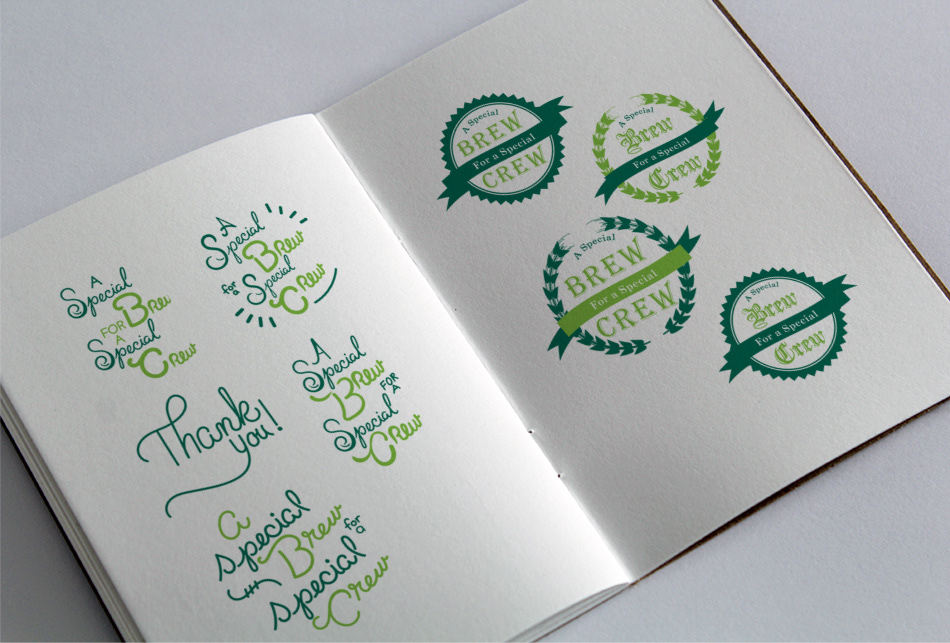 A
Special
Brew
FOR
A
Special
Crew
A
Special
Brew
for
a
Special
Crew
Thank
you!
A
Special
Brew
FOR
A
Special
Crew
a
special
Brew
for
a
with
special
Crew
A Special
BREW
For a Special
CREW
A Special
Brew
For a Special
Crew
A Special
BREW
For a Special
CREW
A Special
Brew
For a Special
Crew